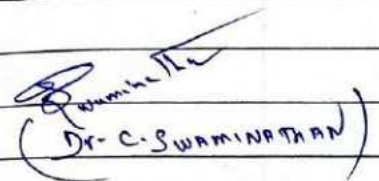 Swaminatha
(Dr- C. SWAMINATHAN)